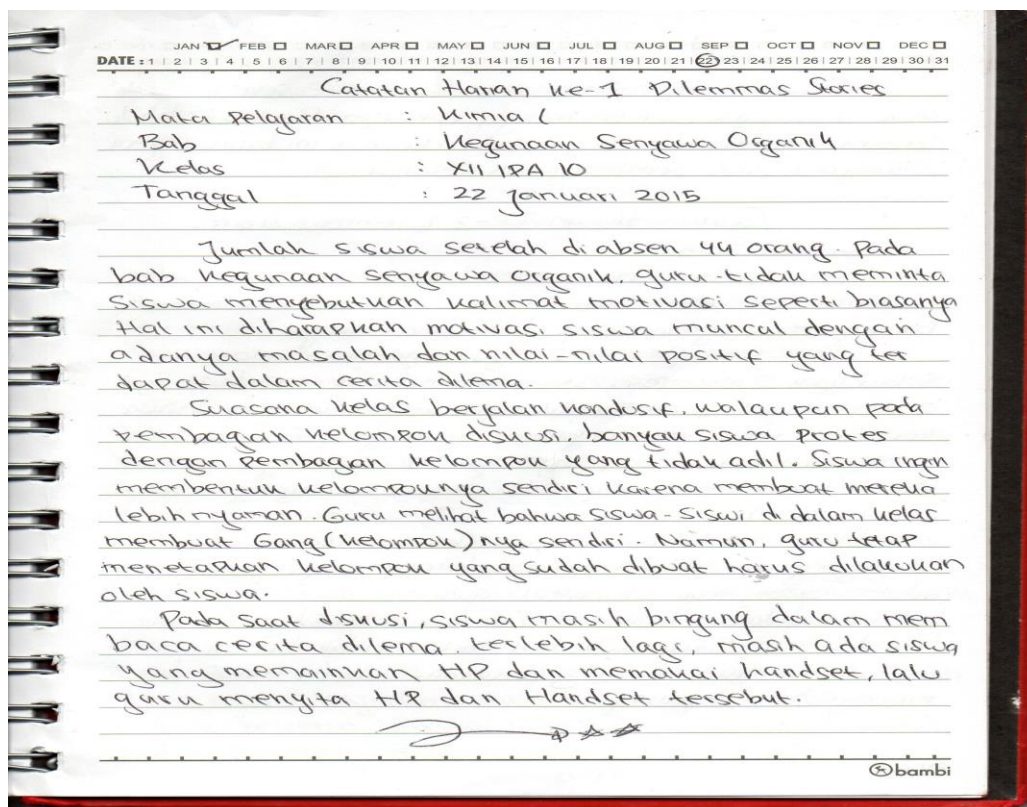 JAN FEB MAR APR MAY JUN JUL AUG SEP OCT NOV DEC
DATE : 1 | 2 | 3 | 4 | 5 | 6 | 7 | 8 | 9 | 10 | 11 | 12 | 13 | 14 | 15 | 16 | 17 | 18 | 19 | 20 | 21 | 22 | 23 | 24 | 25 | 26 | 27 | 28 | 29 | 30 | 31
Catatan Harian ke-1 Dilemmas Stories
Mata Pelajaran : Kimia
Bab : Kegunaan Senyawa Organik
Kelas : XII IPA 10
Tanggal : 22 Januari 2015
Jumlah siswa setelah di absen 44 orang. Pada
bab kegunaan senyawa organik, guru tidak meminta
siswa menyebutkan kalimat motivasi seperti biasanya
Hal ini diharapkan motivasi siswa muncul dengan
adanya masalah dan nilai-nilai positif yang ter
dapat dalam cerita dilema.
Suasana kelas berjalan kondusif, walaupun pada
pembagian kelompok diskusi, banyak siswa protes
dengan pembagian kelompok yang tidak adil. Siswa ingin
membentuk kelompoknya sendiri karena membuat mereka
lebih nyaman. Guru melihat bahwa siswa-siswi di dalam kelas
membuat Gang (kelompok) nya sendiri. Namun, guru tetap
menetapkan kelompok yang sudah dibuat harus dilakukan
oleh siswa.
Pada saat diskusi, siswa masih bingung dalam mem
baca cerita dilema. terlebih lagi, masih ada siswa
yang memainkan HP dan memakai handset, lalu
guru menyita HP dan Handset tersebut.
bambi